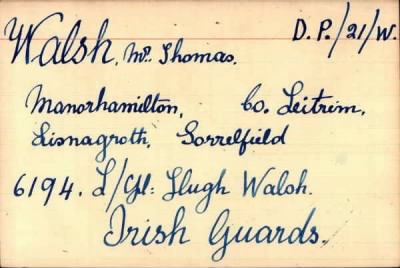 D.P./21/W.
Walsh, Mr. Thomas.
Manorhamilton, Co. Leitrim,
Lisnagroth, Sorrelfield
6194. L/Cpl: Hugh Walsh.
Irish Guards.